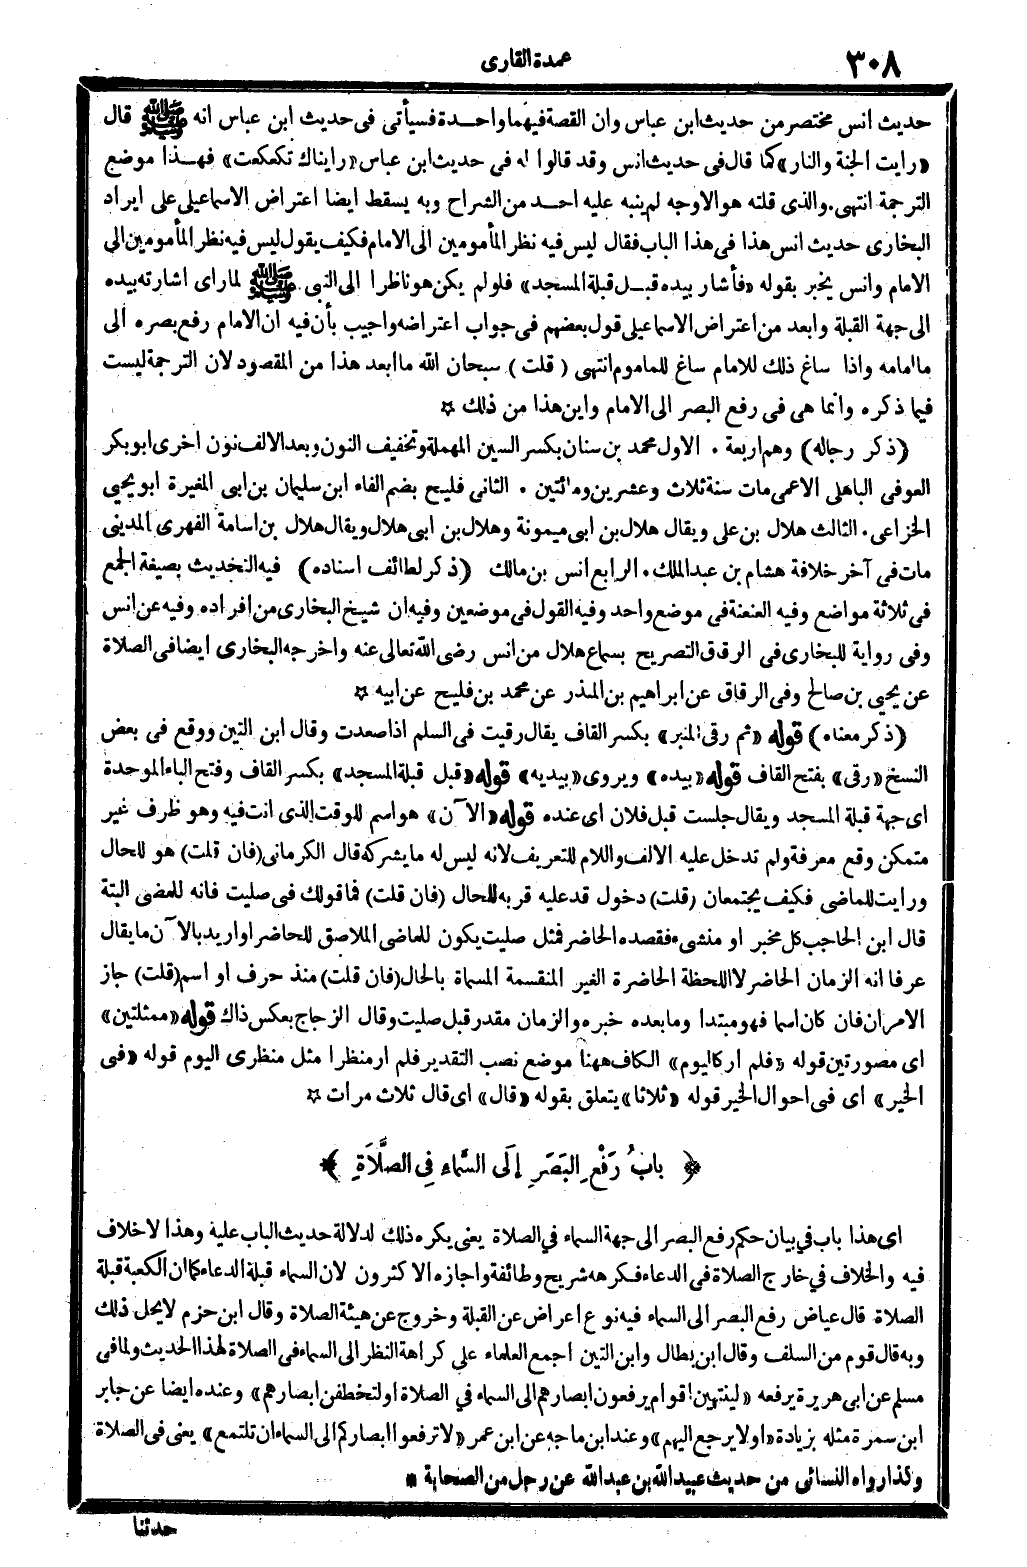 ٣٠٨
عمدة القارى
حديث انس مختصر من حديث ابن عباس وان القصة فيهما واحدة فسيأتى فى حديث ابن عباس انه ﷺ قال
«رايت الجنة والنار» كما قال فى حديث انس وقد قالوا له فى حديث ابن عباس «رايناك تكعكعت» فهذا موضع
الترجمة انتهى. والذى قلته هو الاوجه لم ينبه عليه احد من الشراح وبه يسقط ايضا اعتراض الاسماعيلى على ايراد
البخارى حديث انس هذا فى هذا الباب فقال ليس فيه نظر المأمومين الى الامام فكيف يقول ليس فيه نظر المأمومين الى
الامام وانس يخبر بقوله «فأشار بيده قبل قبلة المسجد» فلو لم يكن هو ناظرا الى النبى ﷺ لما راى اشارته بيده
الى جهة القبلة وابعد من اعتراض الاسماعيلى قول بعضهم فى جواب اعتراضه واجيب بأن فيه ان الامام رفع بصره الى
ما امامه واذا ساغ ذلك للامام ساغ للماموم انتهى ( قلت ) سبحان الله ما ابعد هذا من المقصود لان الترجمة ليست
فيما ذكره وانما هى فى رفع البصر الى الامام واين هذا من ذلك ☆
(ذكر رجاله) وهم اربعة . الاول محمد بن سنان بكسر السين المهملة وتخفيف النون وبعد الالف نون اخرى ابو بكر
العوفى الباهلى الاعمى مات سنة ثلاث وعشرين ومائتين . الثانى فليح بضم الفاء ابن سليمان بن ابى المغيرة ابو يحيى
الخزاعى . الثالث هلال بن على ويقال هلال بن ابى ميمونة وهلال بن ابى هلال ويقال هلال بن اسامة الفهرى المدينى
مات فى آخر خلافة هشام بن عبد الملك . الرابع انس بن مالك (ذكر لطائف اسناده) فيه التحديث بصيغة الجمع
فى ثلاثة مواضع وفيه العنعنة فى موضع واحد وفيه القول فى موضعين وفيه ان شيخ البخارى من افراده وفيه عن انس
وفى رواية للبخارى فى الرقاق التصريح بسماع هلال من انس رضى الله تعالى عنه واخرجه البخارى ايضا فى الصلاة
عن يحيى بن صالح وفى الرقاق عن ابراهيم بن المنذر عن محمد بن فليح عن ابيه ☆
(ذكر معناه) قوله «ثم رقى المنبر» بكسر القاف يقال رقيت فى السلم اذا صعدت وقال ابن التين ووقع فى بعض
النسخ «رقى» بفتح القاف قوله «بيده» ويروى «بيديه» قوله «قبل قبلة المسجد» بكسر القاف وفتح الباء الموحدة
اى جهة قبلة المسجد ويقال جلست قبل فلان اى عنده قوله «الآن» هو اسم للوقت الذى انت فيه وهو ظرف غير
متمكن وقع معرفة ولم تدخل عليه الالف واللام للتعريف لانه ليس له ما يشركه قال الكرمانى (فان قلت) هو للحال
ورايت للماضى فكيف يجتمعان (قلت) دخول قد عليه قربه للحال (فان قلت) فما قولك فى صليت فانه للمضى البتة
قال ابن الحاجب كل مخبر او منشىء فقصده الحاضر فمثل صليت يكون للماضى الملاصق للحاضر او اريد بالآن ما يقال
عرفا انه الزمان الحاضر لا اللحظة الحاضرة الغير المنقسمة المسماة بالحال (فان قلت) منذ حرف او اسم (قلت) جاز
الامران فان كان اسما فهو مبتدا وما بعده خبره والزمان مقدر قبل صليت وقال الزجاج بعكس ذاك قوله «ممثلتين»
اى مصورتين قوله «فلم ار كاليوم» الكاف ههنا موضع نصب التقدير فلم ار منظرا مثل منظرى اليوم قوله «فى
الخير» اى فى احوال الخير قوله «ثلاثا» يتعلق بقوله «قال» اى قال ثلاث مرات ☆
﴿ بابُ رَفْعِ البَصَرِ إِلَى السَّمَاءِ فِي الصَّلَاةِ ﴾
اى هذا باب في بيان حكم رفع البصر الى جهة السماء في الصلاة يعنى يكره ذلك لدلالة حديث الباب عليه وهذا لا خلاف
فيه والخلاف في خارج الصلاة فى الدعاء فكرهه شريح وطائفة واجازه الاكثرون لان السماء قبلة الدعاء كما ان الكعبة قبلة
الصلاة قال عياض رفع البصر الى السماء فيه نوع اعراض عن القبلة وخروج عن هيئة الصلاة وقال ابن حزم لا يحل ذلك
وبه قال قوم من السلف وقال ابن بطال وابن التين اجمع العلماء على كراهة النظر الى السماء فى الصلاة لهذا الحديث ولما فى
مسلم عن ابى هريرة يرفعه «لينتهين اقوام يرفعون ابصارهم الى السماء في الصلاة او لتخطفن ابصارهم» وعنده ايضا عن جابر
ابن سمرة مثله بزيادة «او لا يرجع اليهم» وعند ابن ماجه عن ابن عمر «لا ترفعوا ابصاركم الى السماء ان تلتمع» يعنى فى الصلاة
وكذا رواه النسائى من حديث عبيد الله بن عبد الله عن رجل من الصحابة *
حدثنا